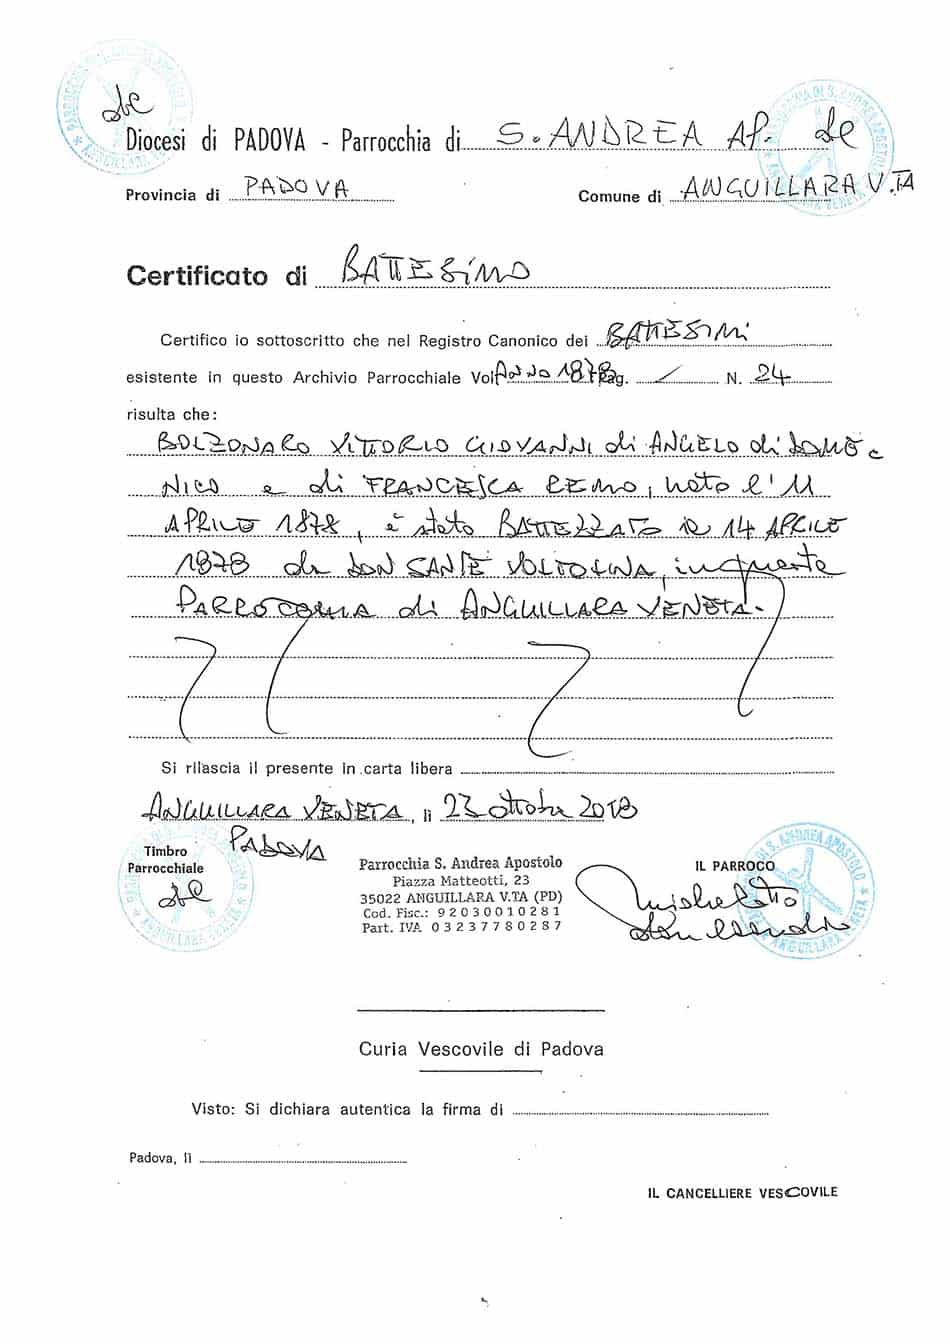 Diocesi di PADOVA - Parrocchia di S. ANDREA AP.
Provincia di PADOVA Comune di ANGUILLARA V.TA
Certificato di BATTESIMO
Certifico io sottoscritto che nel Registro Canonico dei BATTESIMI
esistente in questo Archivio Parrocchiale Vol. Anno 1878 Pag. / N. 24
risulta che:
BOLZONARO VITTORIO GIOVANNI di ANGELO di DOME
NICO e di FRANCESCA REMO, nato l'11
APRILE 1878, è stato BATTEZZATO il 14 APRILE
1878 da DON SANTE VOLTOLINA, in questa
PARROCCHIA di ANGUILLARA VENETA.
Si rilascia il presente in carta libera
ANGUILLARA VENETA, li 23 ottobre 2018
PADOVA
Timbro
Parrocchiale
Parrocchia S. Andrea Apostolo
Piazza Matteotti, 23
35022 ANGUILLARA V.TA (PD)
Cod. Fisc.: 92030010281
Part. IVA 03237780287
IL PARROCO
Curia Vescovile di Padova
Visto: Si dichiara autentica la firma di
Padova, lì
IL CANCELLIERE VESCOVILE